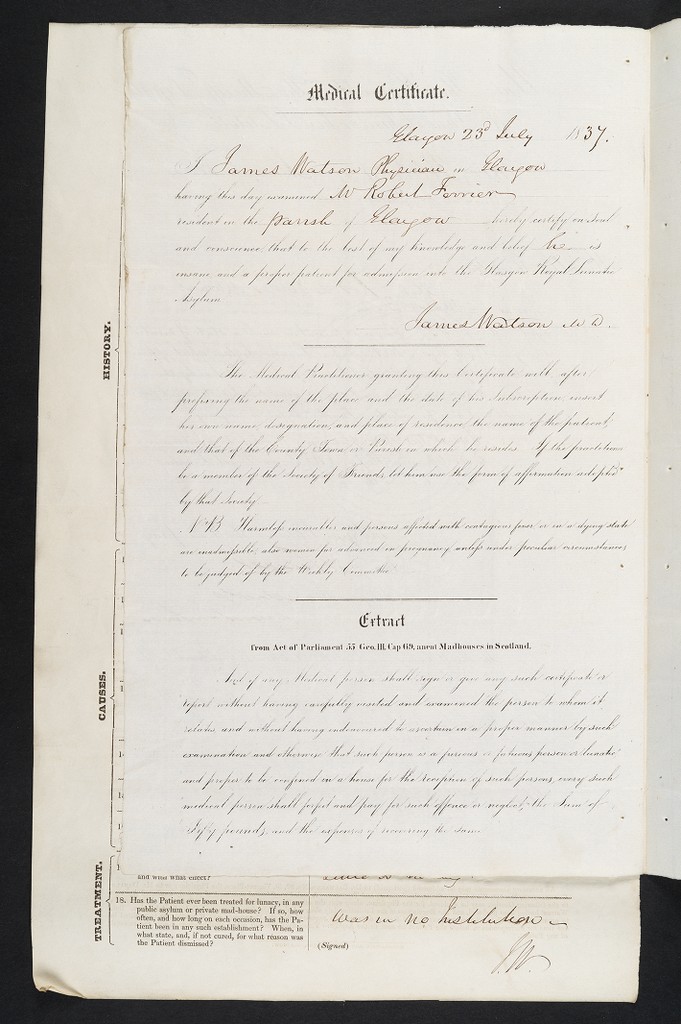 Medical Certificate.
Glasgow 23d July 1837.
I James Watson Physician in Glasgow
having this day examined Mr Robert Ferrier
resident in the parish of Glasgow hereby certify on soul
and conscience, that to the best of my knowledge and belief he is
insane, and a proper patient for admission into the Glasgow Royal Lunatic
Asylum
James Watson M.D.
The Medical Practitioner granting this Certificate will after
prefixing the name of the place and the date of his Subscription, insert
his own name, designation, and place of residence, the name of the patient,
and that of the County Town or Parish in which he resides. If the practitioner
be a member of the Society of Friends, let him use the form of affirmation adopted
by that Society.
N.B. Harmless incurables and persons affected with contagious fever or in a dying state
are inadmissible, also women far advanced in pregnancy unless under peculiar circumstances
to be judged of by the Weekly Committee
Extract
from Act of Parliament 55 Geo. III. Cap 69, anent Madhouses in Scotland.
And if any Medical person shall sign or give any such certificate or
report without having carefully visited and examined the person to whom it
relates and without having endeavoured to ascertain in a proper manner by such
examination and otherwise that such person is a furious or fatuous person or lunatic
and proper to be confined in a house for the reception of such persons, every such
medical person shall forfeit and pay for such offence or neglect, the Sum of
Fifty pounds, and the expenses of recovering the same
HISTORY.
CAUSES.
TREATMENT.
and with what effect?
18. Has the Patient ever been treated for lunacy, in any
public asylum or private mad-house? If so, how
often, and how long on each occasion, has the Pa-
tient been in any such establishment? When, in
what state, and, if not cured, for what reason was
the Patient dismissed?
Was in no Institution
(Signed)
J.W.